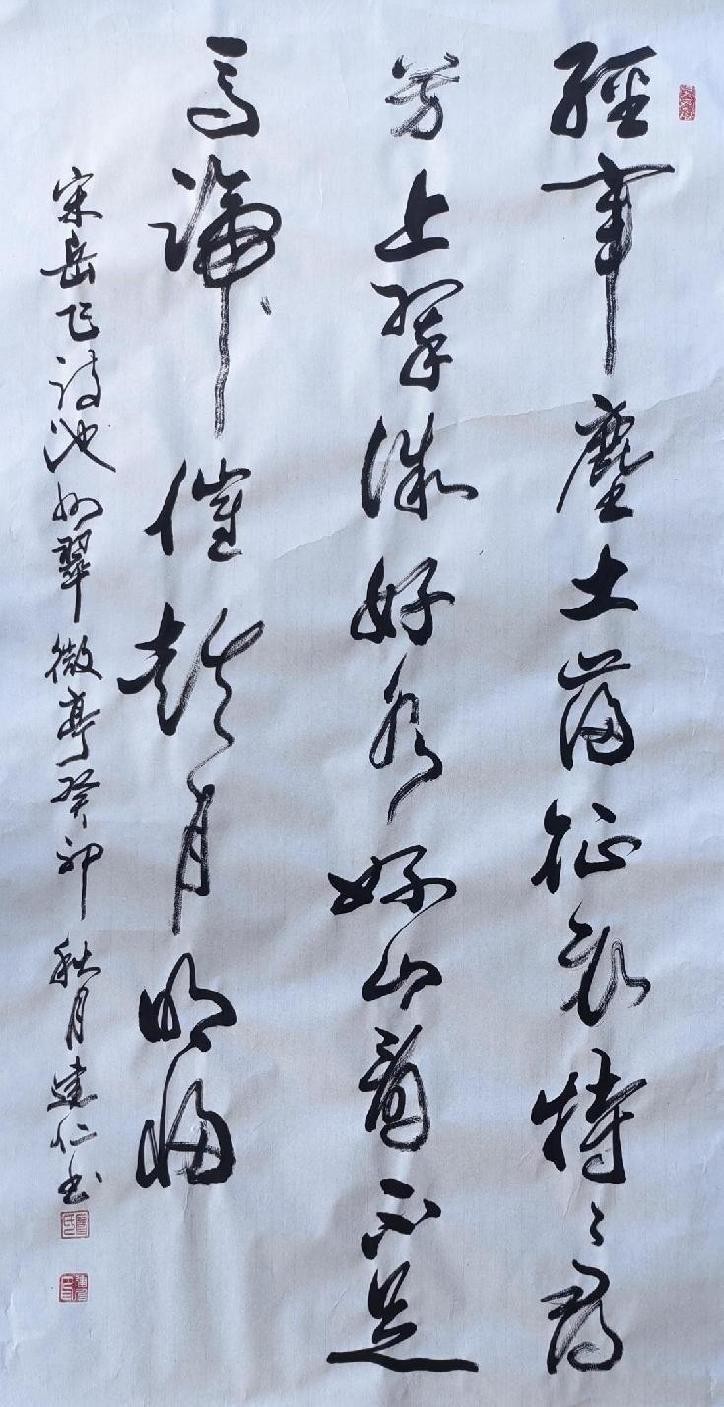 經年塵土滿征衣特〻尋
芳上翠微好水好山看不足
馬蹄催趁月明歸
宋岳飞詩池州翠微亭癸卯秋月建仁书